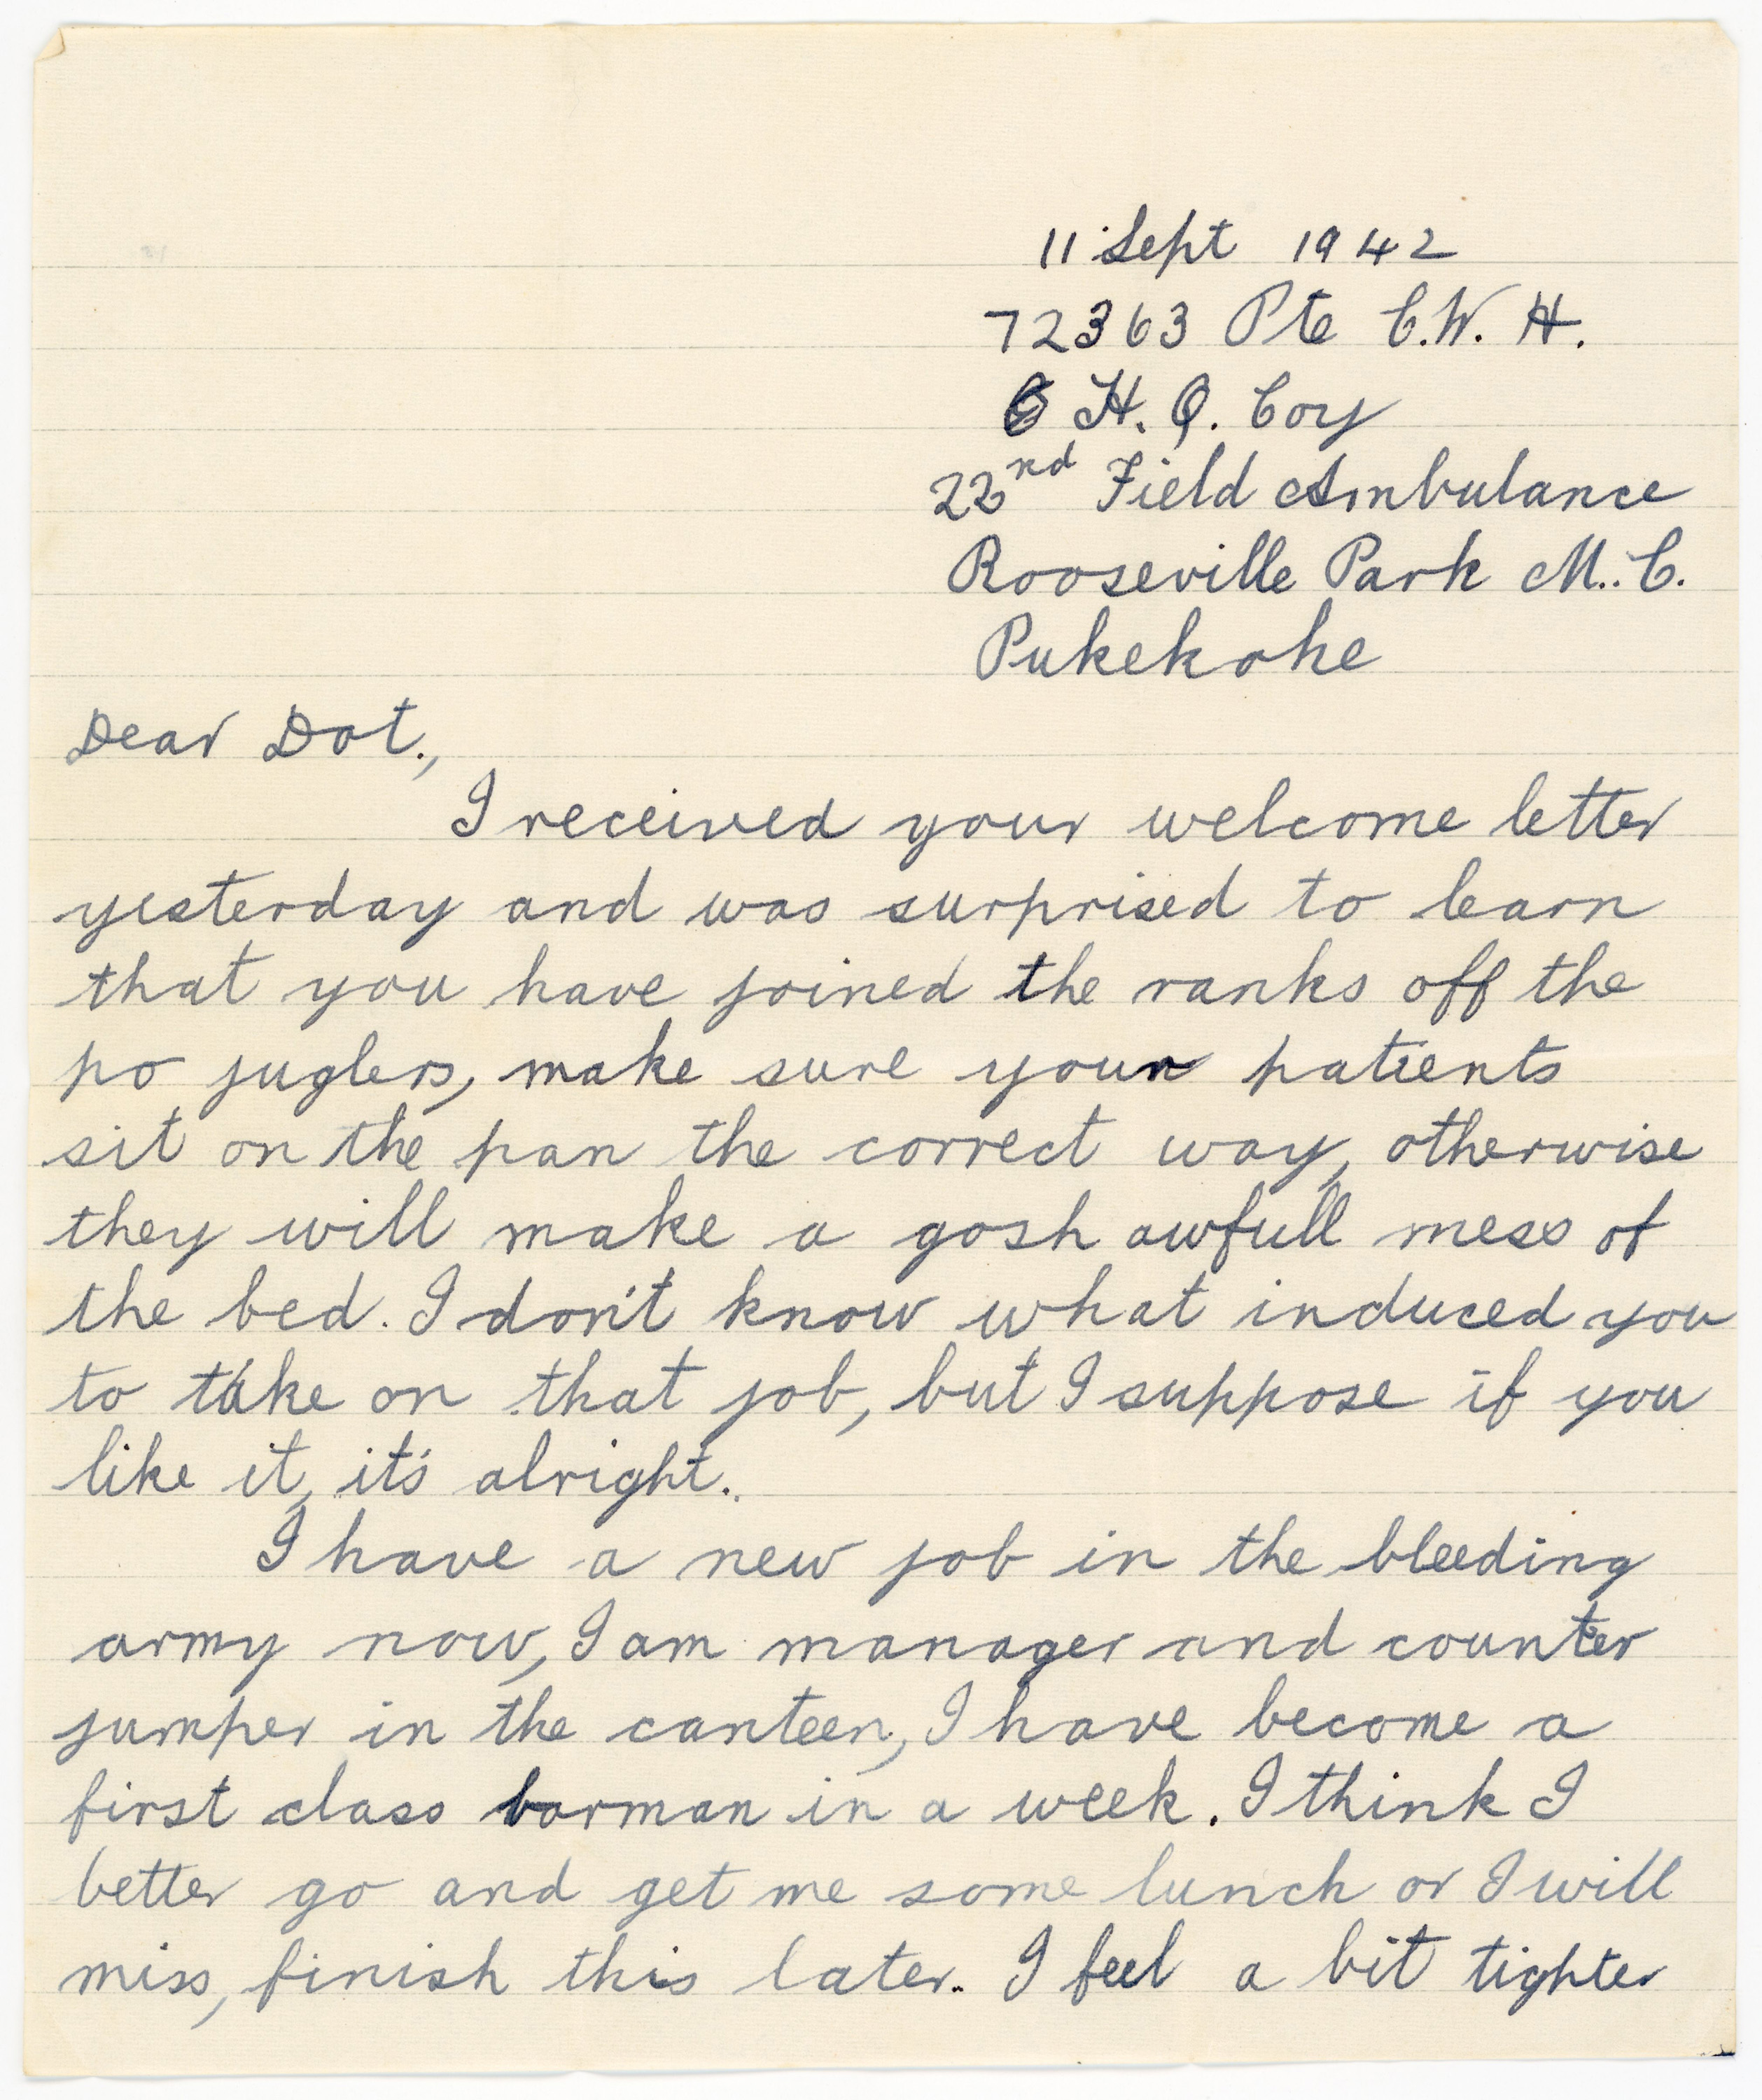 11 Sept 1942
72363 Pte C.W. H.
H. Q. Coy
22nd Field Ambulance
Rooseville Park M.C.
Pukekohe
Dear Dot.,
I received your welcome letter
yesterday and was surprised to learn
that you have joined the ranks off the
po juglers, make sure your patients
sit on the pan the correct way, otherwise
they will make a gosh awfull mess of
the bed. I don't know what induced you
to take on that job, but I suppose if you
like it, it's alright.
I have a new job in the bleeding
army now, I am manager and counter
jumper in the canteen, I have become a
first class barman in a week. I think I
better go and get me some lunch or I will
miss, finish this later. I feel a bit tighter